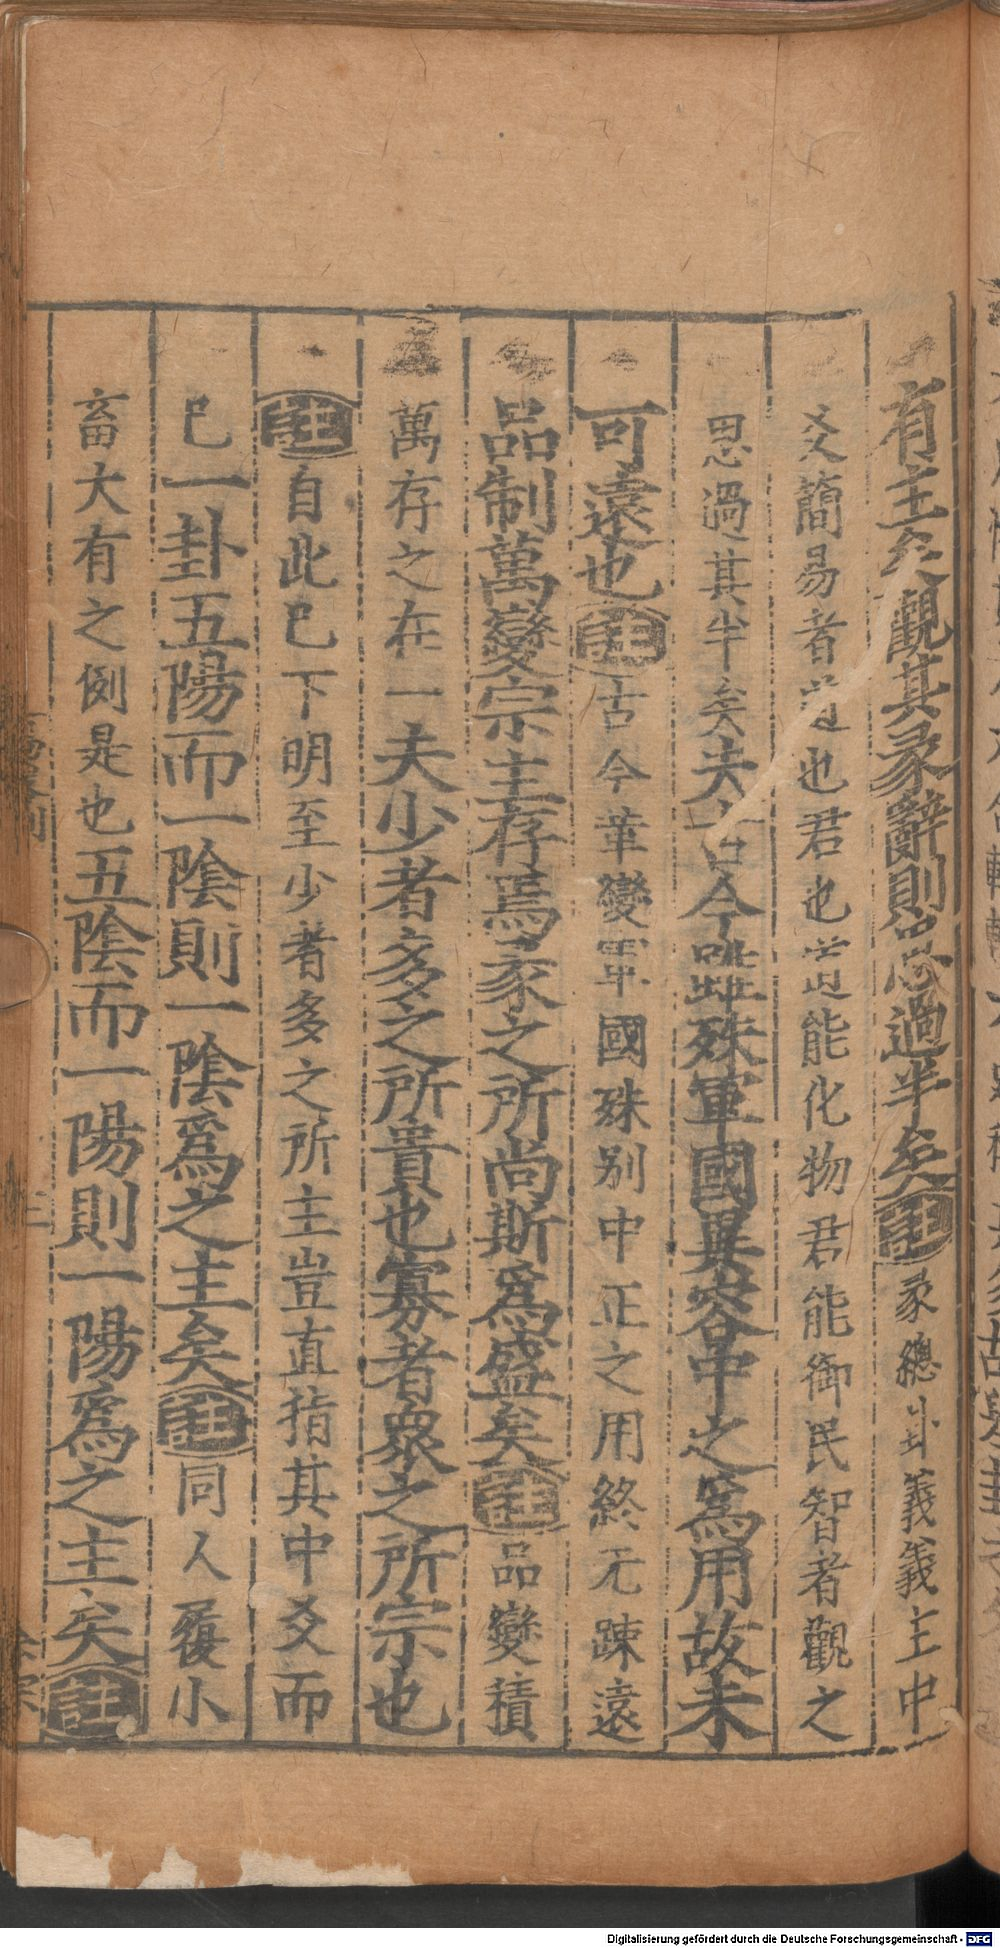 有主矣觀其彖辭則思過半矣註彖總卦義義主中
爻簡易者道也君也道能化物君能御民智者觀之
思過其半矣夫古今雖殊軍國異容中之爲用故未
可遠也註古今革變軍國殊别中正之用終无踈遠
品制萬變宗主存焉彖之所尚斯爲盛矣註品變積
萬存之在一夫少者多之所貴也寡者衆之所宗也
註自此已下明至少者多之所主豈直指其中爻而
已一卦五陽而一隂則一隂爲之主矣註同人履小
畜大有之例是也五隂而一陽則一陽爲之主矣註
Digitalisierung gefördert durch die Deutsche Forschungsgemeinschaft - DFG